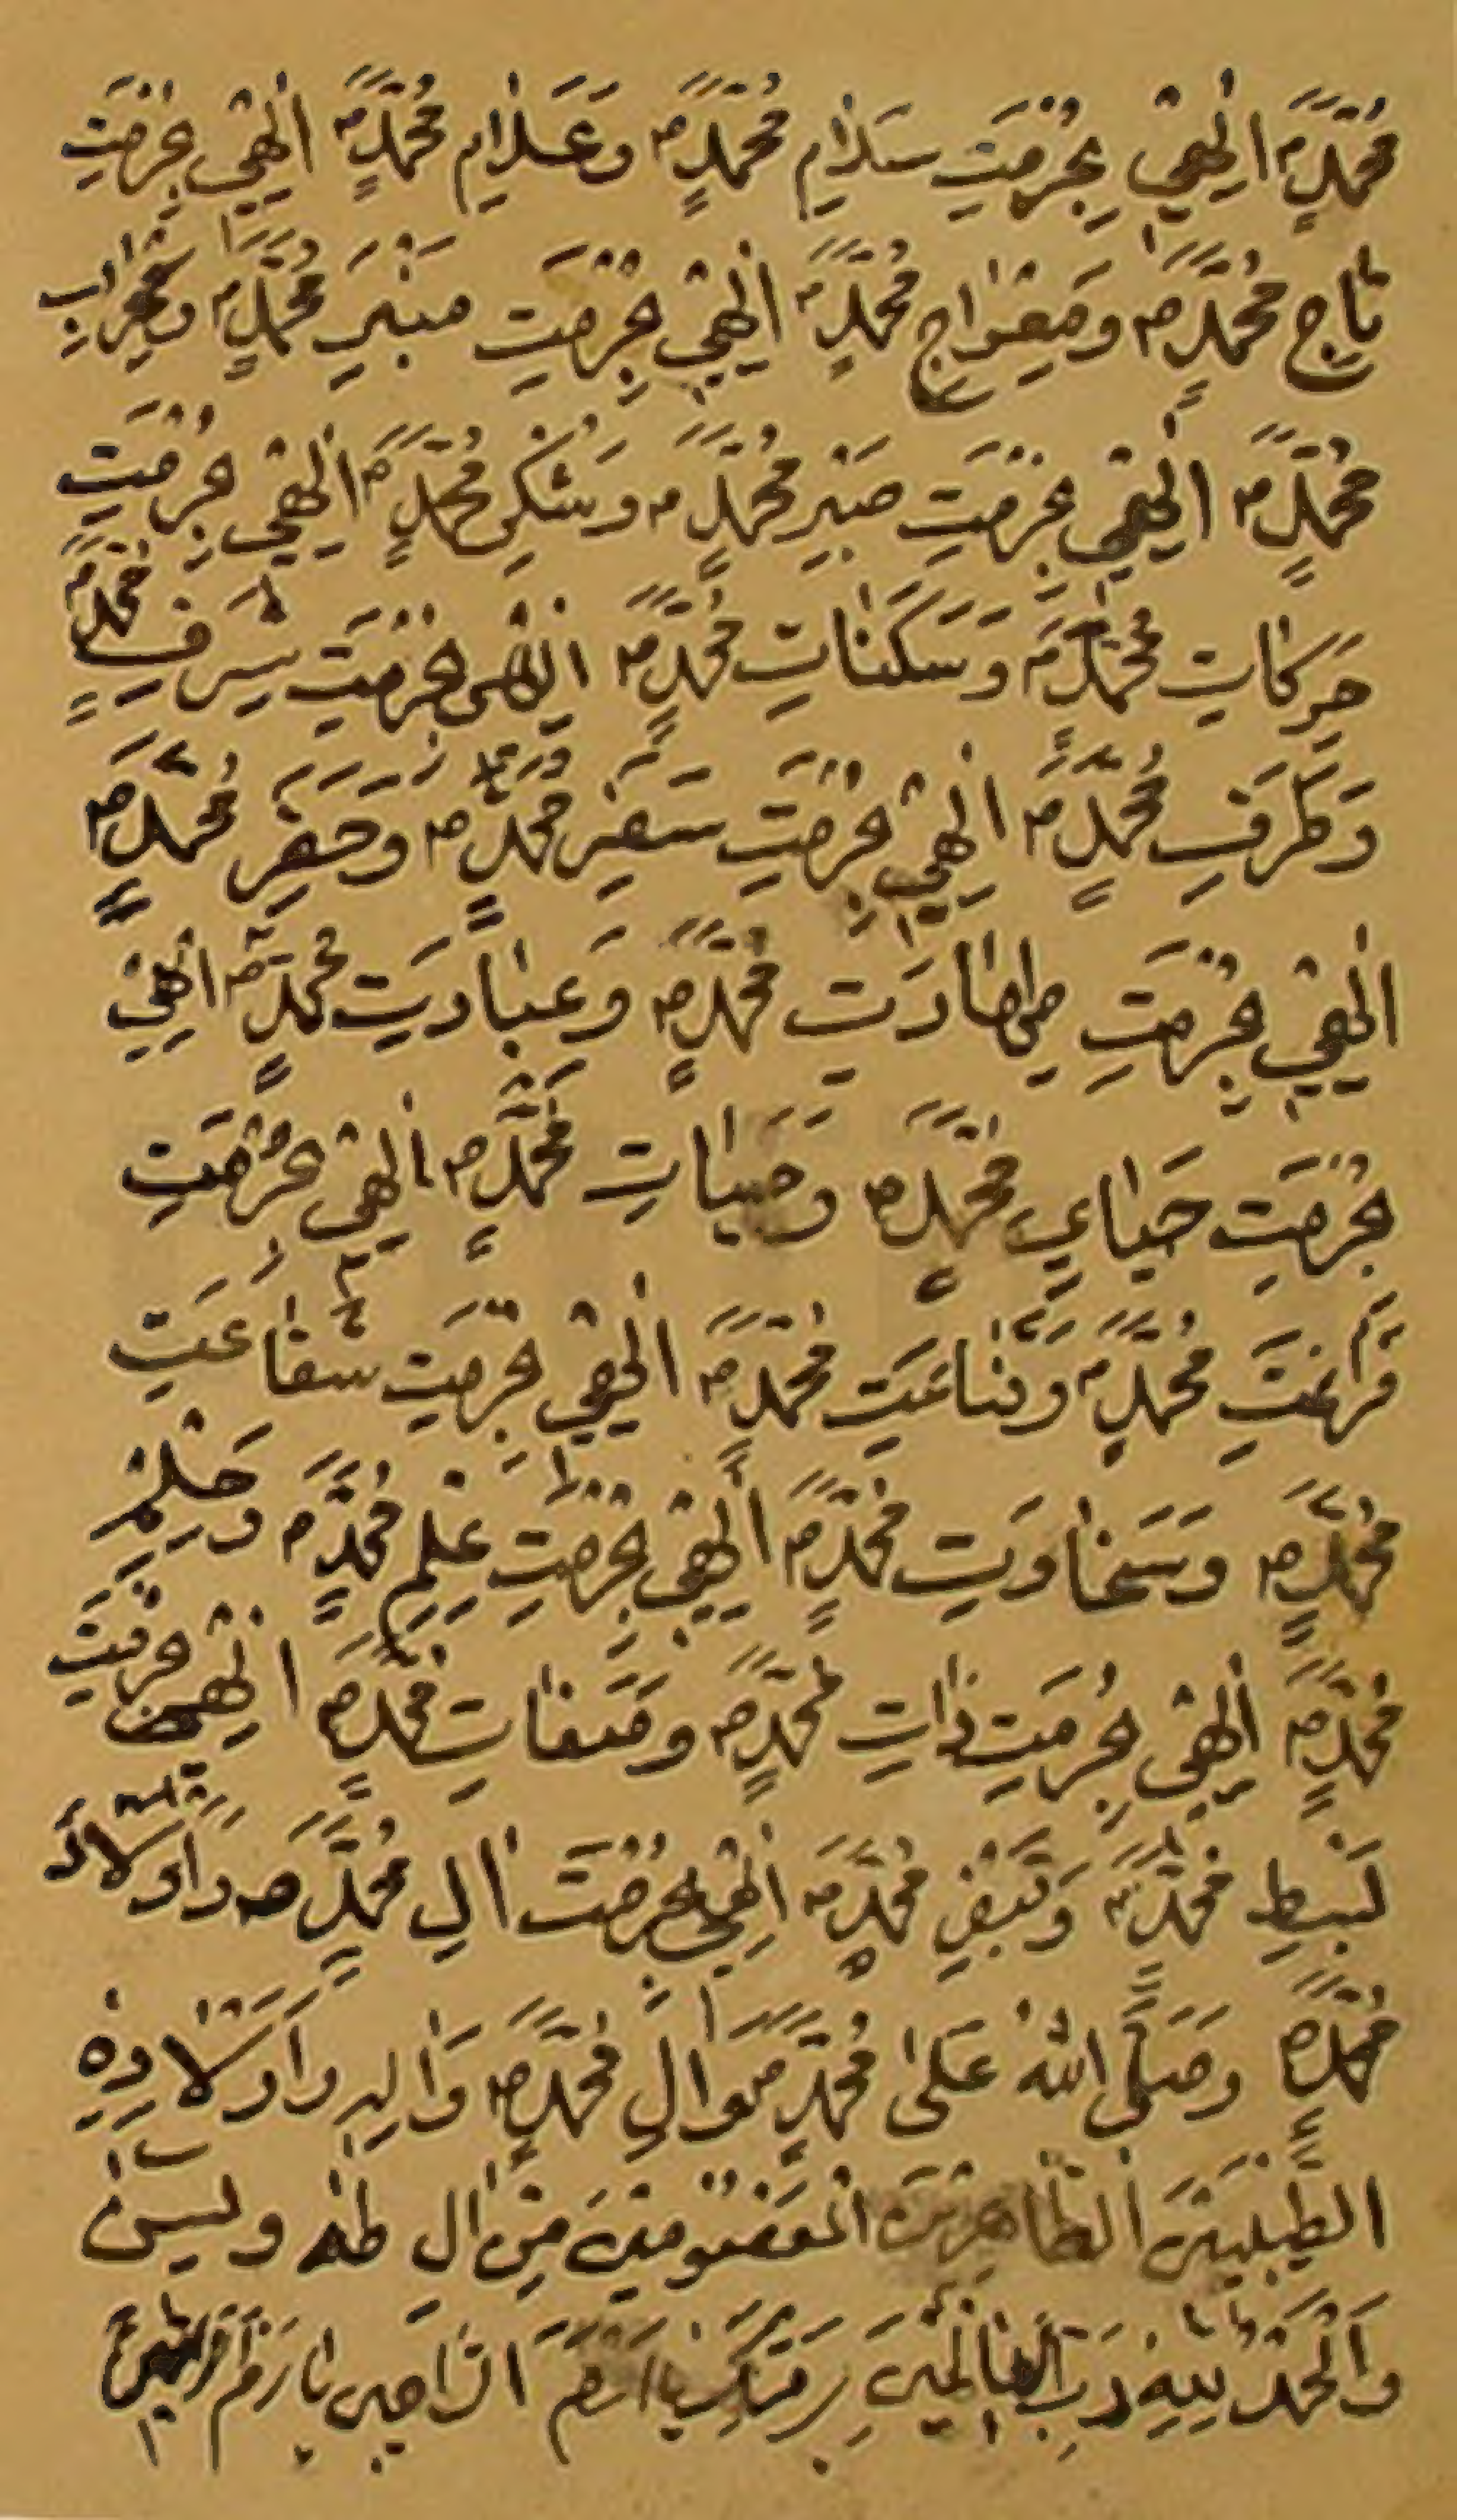 مُحَمَّدٍ ص اِلٰهِي بِحُرْمَتِ سَلَامِ مُحَمَّدٍ ص وَعَلَامِ مُحَمَّدٍ ص اِلٰهِي بِحُرْمَتِ
تَاجِ مُحَمَّدٍ ص وَمِعْرَاجِ مُحَمَّدٍ ص اِلٰهِي بِحُرْمَتِ مِنْبَرِ مُحَمَّدٍ ص وَمِحْرَابِ
مُحَمَّدٍ ص اِلٰهِي بِحُرْمَتِ صَبْرِ مُحَمَّدٍ ص وَشُكْرِ مُحَمَّدٍ ص اِلٰهِي بِحُرْمَتِ
حَرَكَاتِ مُحَمَّدٍ ص وَسَكَنَاتِ مُحَمَّدٍ ص اِلٰهِي بِحُرْمَتِ شَرَفِ مُحَمَّدٍ ص
وَطَرَفِ مُحَمَّدٍ ص اِلٰهِي بِحُرْمَتِ سَفَرِ مُحَمَّدٍ ص وَحَضَرِ مُحَمَّدٍ ص
اِلٰهِي بِحُرْمَتِ طَهَارَتِ مُحَمَّدٍ ص وَعِبَادَتِ مُحَمَّدٍ ص اِلٰهِي
بِحُرْمَتِ حَيَايِ مُحَمَّدٍ ص وَحَيَاتِ مُحَمَّدٍ ص اِلٰهِي بِحُرْمَتِ
مُحَمَّدٍ ص وَقَنَاعَتِ مُحَمَّدٍ ص اِلٰهِي بِحُرْمَتِ شَفَاعَتِ
مُحَمَّدٍ ص وَسَخَاوَتِ مُحَمَّدٍ ص اِلٰهِي بِحُرْمَتِ عِلْمِ مُحَمَّدٍ ص وَحِلْمِ
مُحَمَّدٍ ص اِلٰهِي بِحُرْمَتِ ذَاتِ مُحَمَّدٍ ص وَصِفَاتِ مُحَمَّدٍ ص اِلٰهِي بِحُرْمَتِ
بَسْطِ مُحَمَّدٍ ص وَقَبْضِ مُحَمَّدٍ ص اِلٰهِي بِحُرْمَتِ اٰلِ مُحَمَّدٍ ص وَاَوْلَادِ
مُحَمَّدٍ ص وَصَلَّى اللهُ عَلٰى مُحَمَّدٍ ص وَاٰلِ مُحَمَّدٍ ص وَاٰلِهِ وَاَوْلَادِهِ
الطَّيِّبِيْنَ الطَّاهِرِيْنَ الْمَعْصُوْمِيْنَ مِنْ اٰلِ طٰهٰ وَيٰسٓ
وَالْحَمْدُ لِلّٰهِ رَبِّ الْعَالَمِيْنَ بِرَحْمَتِكَ يَا اَرْحَمَ الرَّاحِمِيْنَ